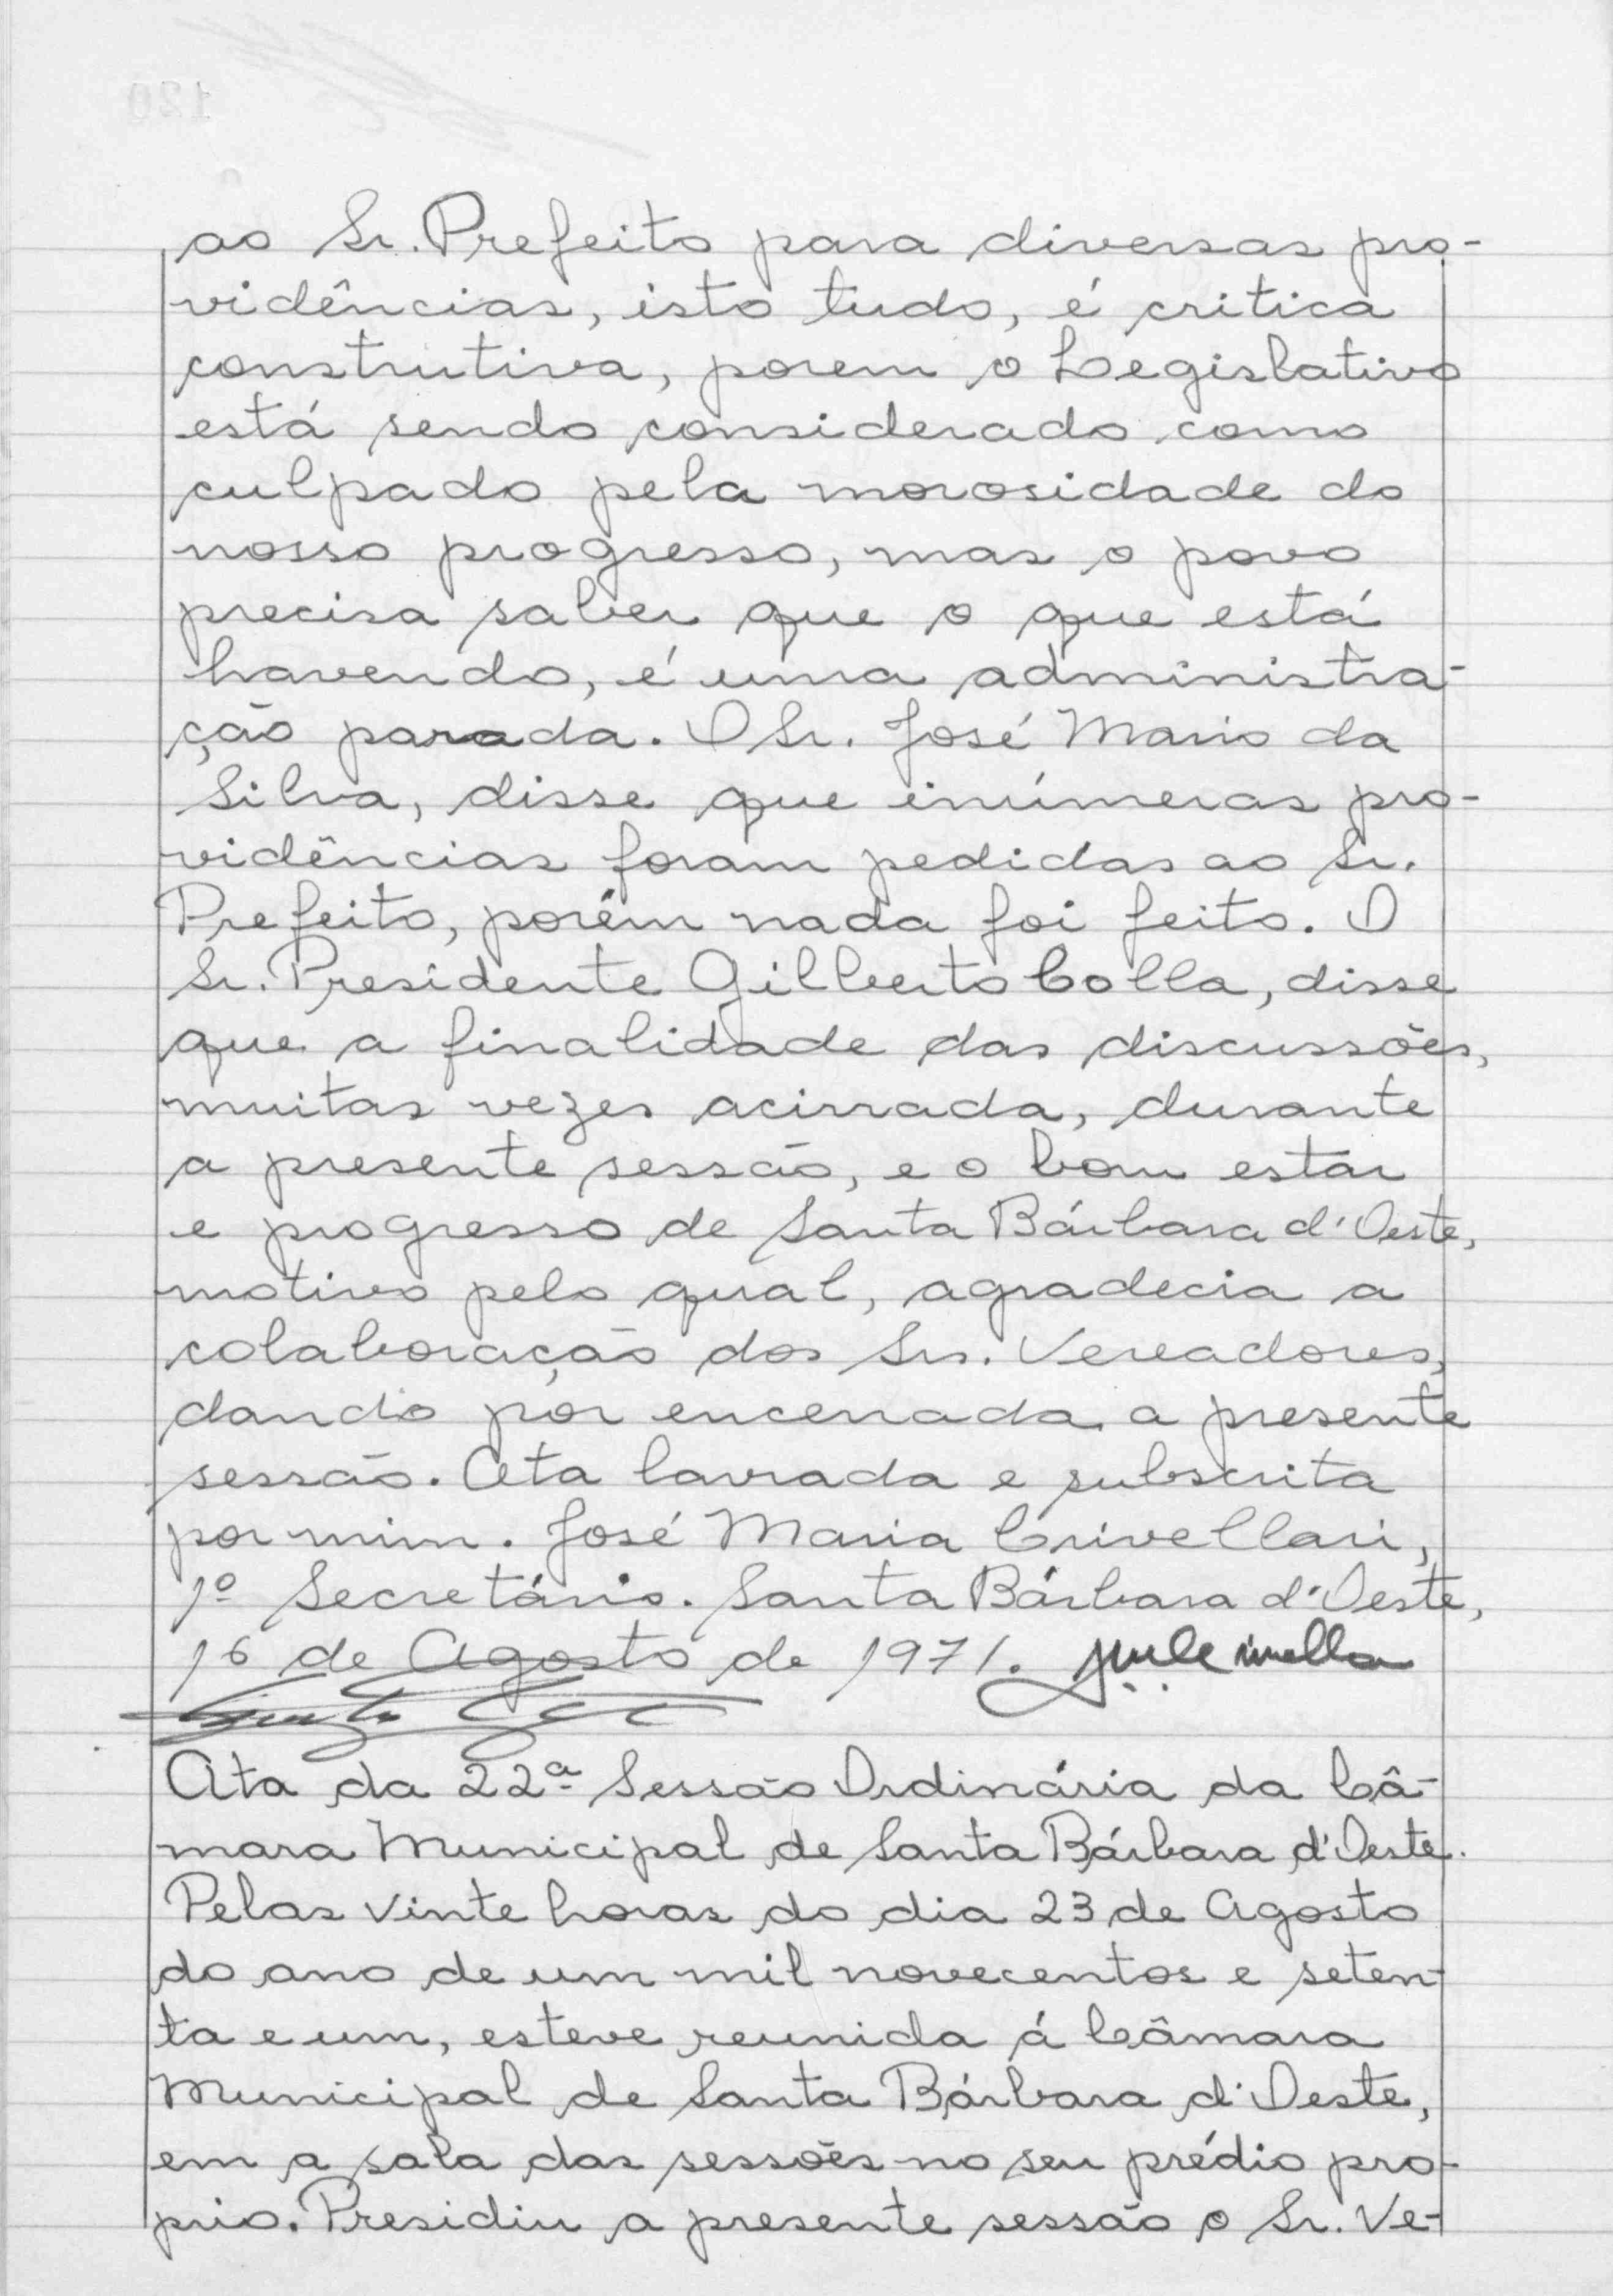 ao Sr. Prefeito para diversas pro-
vidências, isto tudo, é critica
construtiva, porem o Legislativo
está sendo considerado como
culpado pela morosidade do
nosso progresso, mas o povo
precisa saber que o que está
havendo, é uma administra-
ção parada. O Sr. José Mario da
Silva, disse que inúmeras pro-
vidências foram pedidas ao Sr.
Prefeito, porém nada foi feito. O
Sr. Presidente Gilberto Colla, disse
que a finalidade das discussões,
muitas vezes acirrada, durante
a presente sessão, e o bom estar
e progresso de Santa Bárbara d'Oeste,
motivo pelo qual, agradecia a
colaboração dos Srs. Vereadores,
dando por encerrada a presente
sessão. Ata lavrada e subscrita
por mim. José Maria Crivellari,
1º Secretário. Santa Bárbara d'Oeste,
16 de Agosto de 1971.
Ata da 22ª Sessão Ordinária da Câ-
mara Municipal de Santa Bárbara d'Oeste.
Pelas vinte horas do dia 23 de Agosto
do ano de um mil novecentos e seten-
ta e um, esteve reunida á Câmara
Municipal de Santa Bárbara d'Oeste,
em a sala das sessões no seu prédio pro-
prio. Presidiu a presente sessão o Sr. Ve-